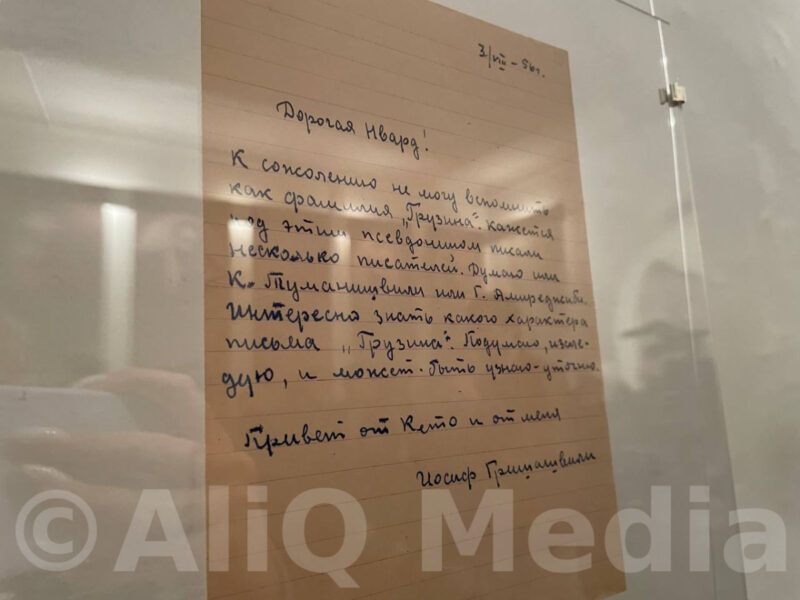 3/VIII – 56 г.
Дорогая Нвард!
К сожолению не могу вспомнить
как фамилия „Грузина“. кажется
под этим псевдонимом писали
несколько писателей. Думаю или
К. Туманишвили или Г. Амиреджиби.
Интересно знать какого характера
письма „Грузина“. Подумаю, изсле-
дую, и может-быть узнаю-уточню.
Привет от Кето и от меня
Иосиф Гришашвили
©AliQ Media